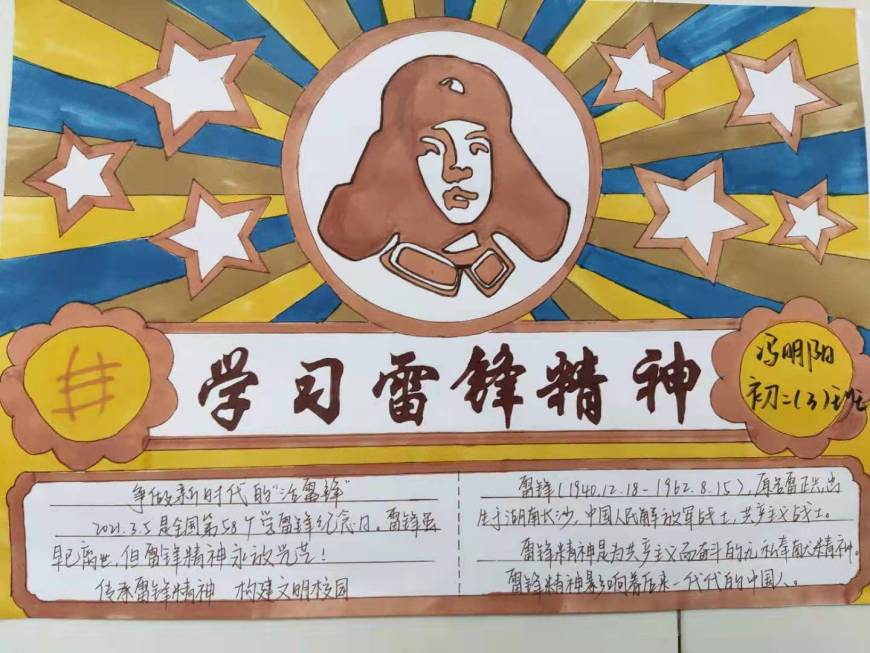 学习雷锋精神
冯明阳
初二(3)班
争做新时代的“活雷锋”
2021.3.5是全国第58个学雷锋纪念日。雷锋虽
早已离世，但雷锋精神永放光芒！
传承雷锋精神 构建文明校园
雷锋(1940.12.18-1962.8.15)，原名雷正兴，出
生于湖南长沙，中国人民解放军战士，共产主义战士。
雷锋精神是为共产主义而奋斗的无私奉献精神。
雷锋精神影响着后来一代代的中国人。